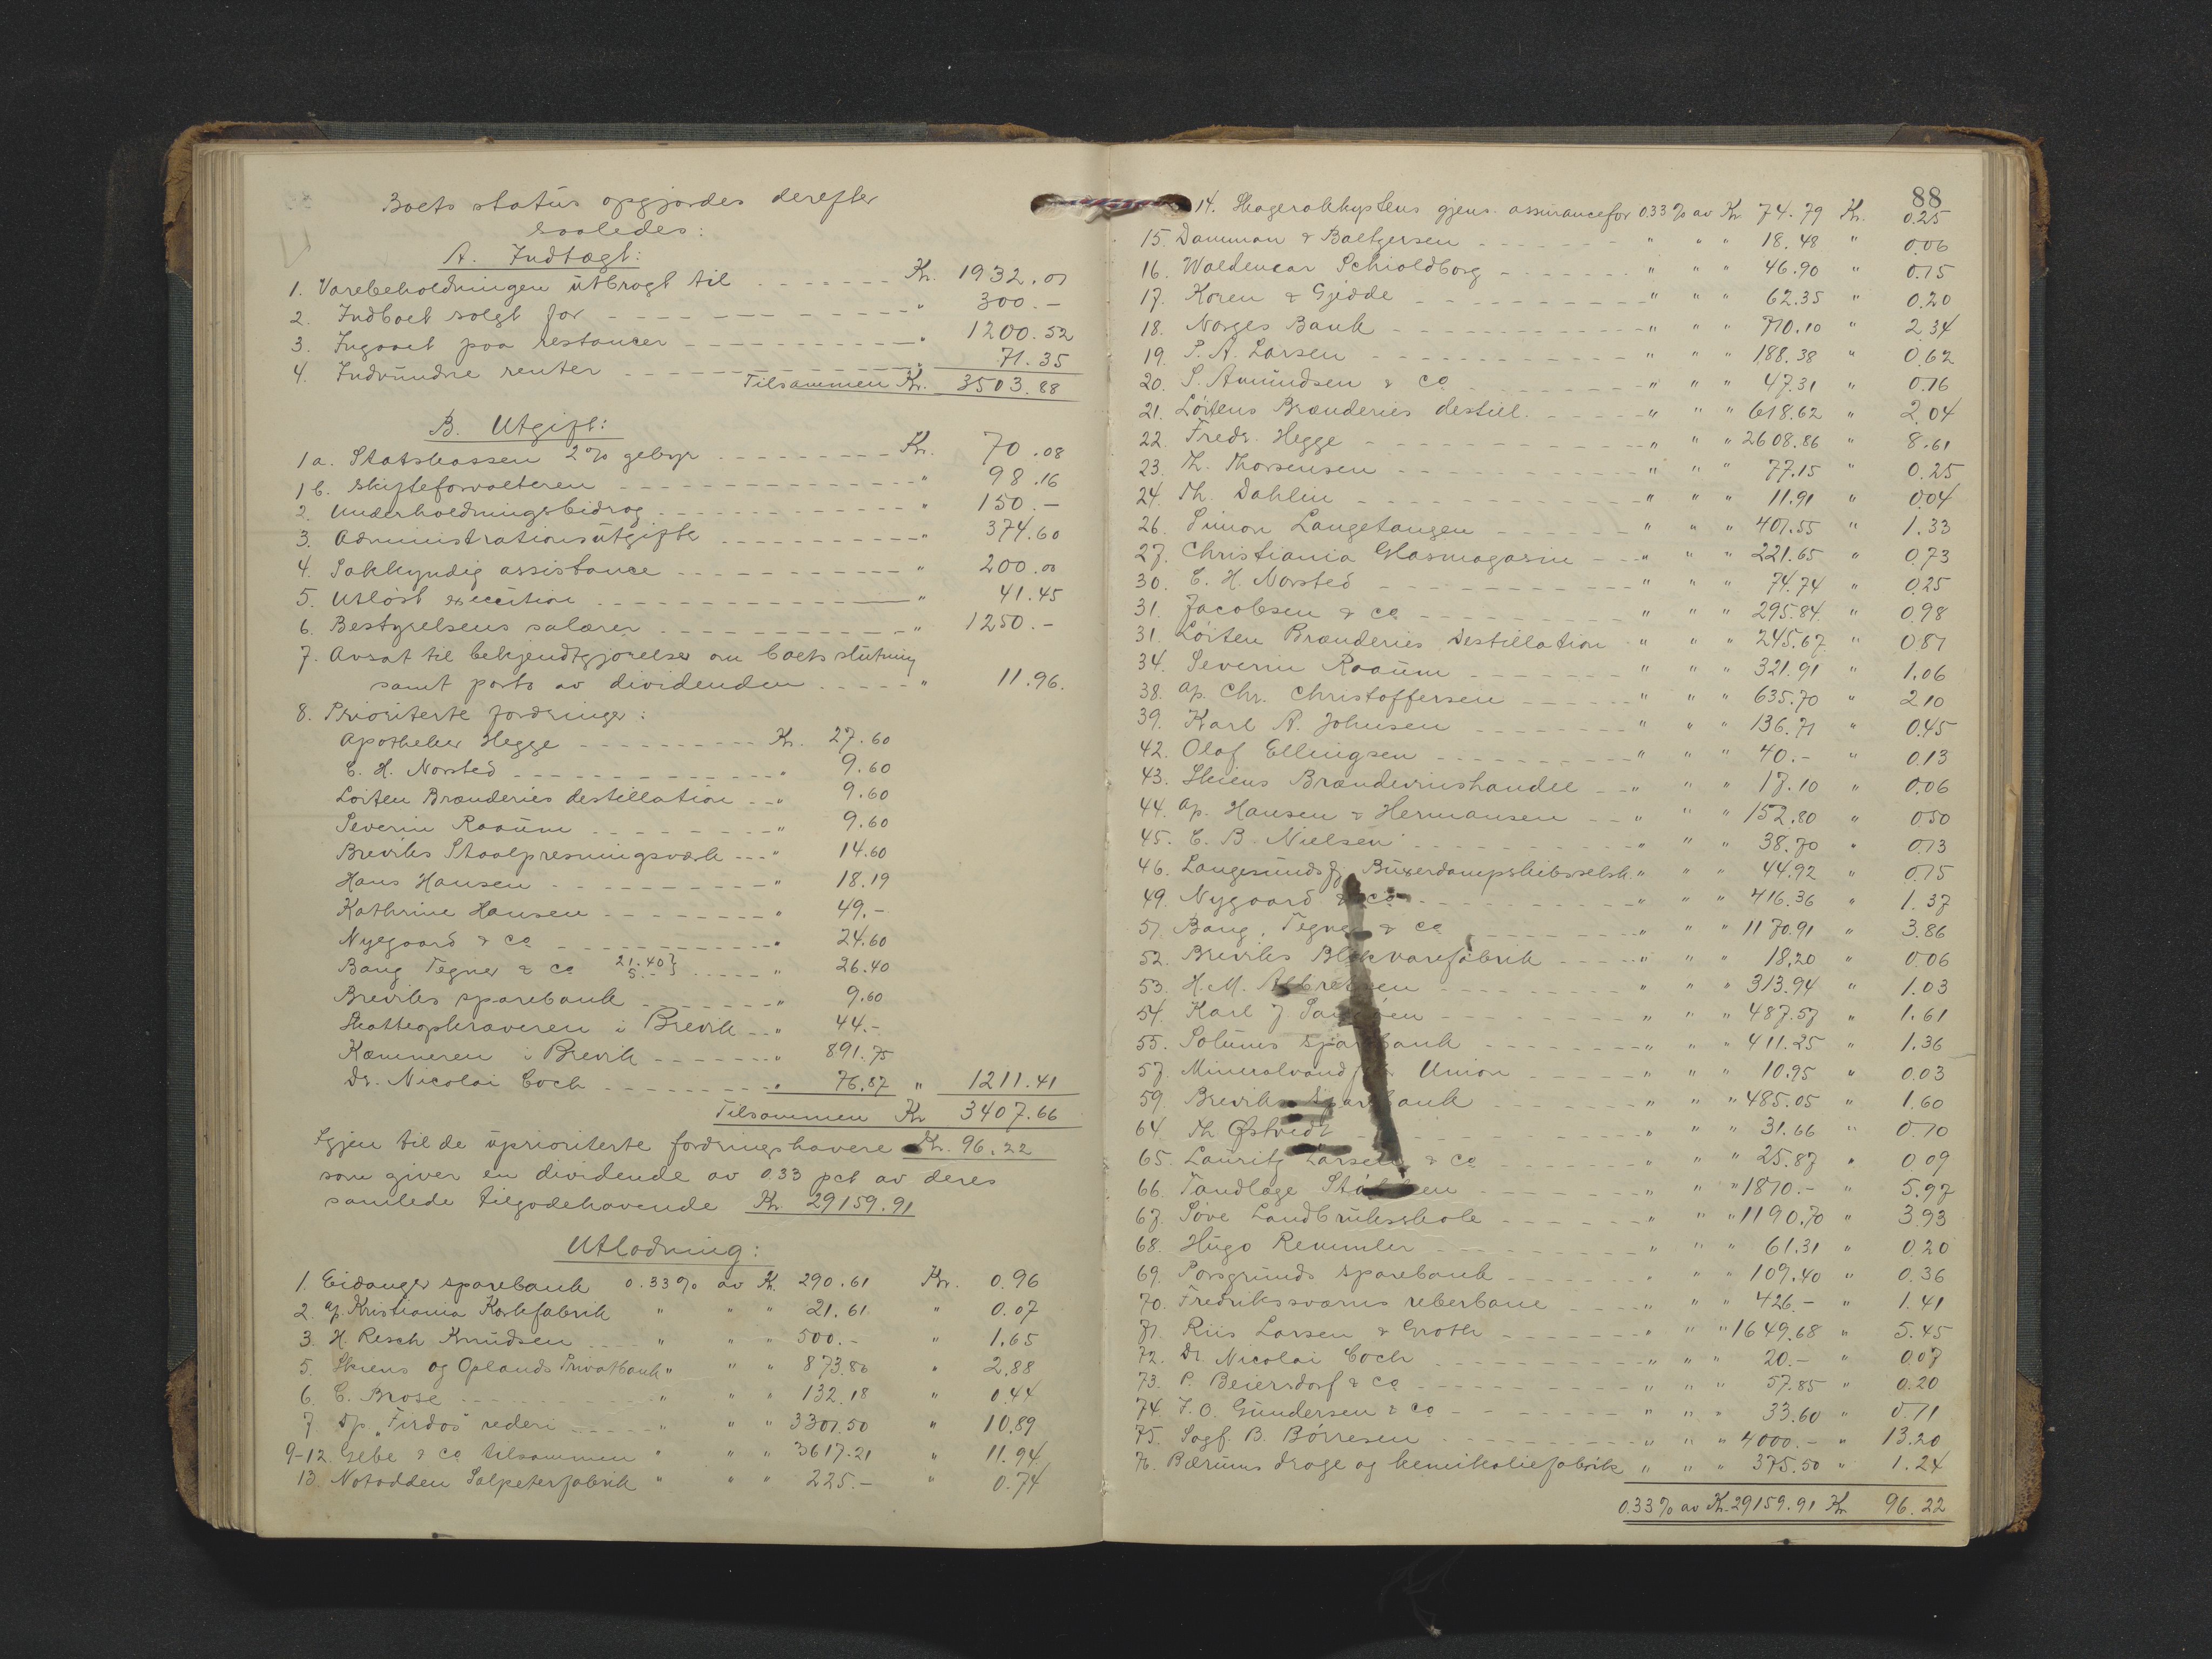 Boets status opgjordes derefter
saaledes:
A. Indtægt:
1. Varebeholdningen utbragt til Kr. 1932.01
2. Indboet solgt for " 300.-
3. Ingaaet paa restancer " 1200.52
4. Indvundne renter " 71.35
Tilsammen Kr. 3503.88
B. Utgift:
1a. Statskassen 2% gebyr Kr. 70.08
1b. Skifteforvalteren " 98.16
2. Underholdningsbidrag " 150.-
3. Administrationsutgifter " 374.60
4. Sakkyndig assistance " 200.00
5. Utløst execution " 41.45
6. Bestyrelsens salærer " 1250.-
7. Avsat til bekjendtgjørelse om boets slutning
samt porto av dividenden " 11.96.
8. Prioriterte fordringer:
Apotheker Hegge Kr. 27.60
C. H. Norsted " 9.60
Løiten Brænderies destillation " 9.60
Severin Raaum " 9.60
Breviks Staalpresningsverk " 14.60
Hans Hansen " 18.19
Kathrine Hansen " 49.-
Nyegaard & Co " 24.60
Bang Tegner & Co 21.40} 5.-} " 26.40
Breviks sparebank " 9.60
Skatteopkræveren i Brevik " 44.-
Kæmneren i Brevik " 891.75
Dr. Nicolai Coch " 76.87 " 1211.41
Tilsammen Kr 3407.66
Igjen til de uprioriterte fordringshavere Kr. 96.22
som giver en dividende av 0.33 pct av deres
samlede tilgodehavende Kr. 29159.91
Utlodning:
1. Eidanger sparebank 0.33% av Kr. 290.61 Kr. 0.96
2. A/S Kristiania Korkfabrik " " " 21.61 " 0.07
3. H. Resch Knudsen " " " 500.- " 1.65
5. Skiens og Oplands Privatbank " " " 873.86 " 2.88
6. C. Brose " " " 132.18 " 0.44
7. D/S "Firdos" rederi " " " 3301.50 " 10.89
9-12. Gebe & Co tilsammen " " " 3617.21 " 11.94
13. Notodden Salpeterfabrik " " " 225.- " 0.74
88
14. Skagerakkystens gjens. assurancefor 0.33% av Kr. 74.79 Kr. 0.25
15. Damman & Baltzersen " " " 18.48 " 0.06
16. Waldemar Schioldborg " " " 46.90 " 0.15
17. Koren & Gjedde " " " 62.35 " 0.20
18. Norges Bank " " " 710.10 " 2.34
19. P. A. Larsen " " " 188.38 " 0.62
20. S. Amundsen & Co " " " 47.31 " 0.16
21. Løitens Brænderies destill. " " " 618.62 " 2.04
22. Fredr. Hegge " " " 2608.86 " 8.61
23. Th. Thorsensen " " " 77.15 " 0.25
24. Th. Dahlin " " " 11.91 " 0.04
26. Simon Langetangen " " " 401.55 " 1.33
27. Christiania Glasmagasin " " " 221.65 " 0.73
30. C. H. Norsted " " " 74.74 " 0.25
31. Jacobsen & Co " " " 295.84 " 0.98
31. Løiten Brænderies Destillation " " " 245.67 " 0.81
34. Severin Raaum " " " 321.91 " 1.06
38. A/S Chr. Christoffersen " " " 635.70 " 2.10
39. Karl A. Johnsen " " " 136.71 " 0.45
42. Olaf Ellingsen " " " 40.- " 0.13
43. Skiens Brændevinshandel " " " 17.10 " 0.06
44. A/S Hansen & Hermansen " " " 152.80 " 0.50
45. C. B. Nielsen " " " 38.70 " 0.13
46. Langesundsfj. Buxerdampskibsselsk. " " " 44.92 " 0.15
49. Nygaard & Co " " " 416.36 " 1.37
51. Bang, Tegner & Co " " " 1170.91 " 3.86
52. Breviks Blikvarefabrik " " " 18.20 " 0.06
53. H. M. Albretsen " " " 313.94 " 1.03
54. Karl J. " " " 487.57 " 1.61
55. Solums sparebank " " " 411.25 " 1.36
57. Mineralvandf. Union " " " 10.95 " 0.03
59. Breviks Sparebank " " " 485.05 " 1.60
64. Th Østvedt " " " 31.66 " 0.10
65. Lauritz Larsen & Co " " " 25.87 " 0.09
66. Tandlæge " " " 1810.- " 5.97
67. Søve Landbruksskole " " " 1190.70 " 3.93
68. Hugo Remmler " " " 61.31 " 0.20
69. Porsgrunds sparebank " " " 109.40 " 0.36
70. Fredriksværns reberbane " " " 426.- " 1.41
71. Riis Larsen & Groth " " " 1649.68 " 5.45
72. Dr. Nicolai Coch " " " 20.- " 0.07
73. P. Beiersdorf & Co " " " 57.85 " 0.20
74. J. O. Gundersen & Co " " " 33.60 " 0.11
75. Sagf. B. Børresen " " " 4000.- " 13.20
76. Bærums droge og kemikaliefabrik " " " 375.50 " 1.24
0.33% av Kr. 29159.91 Kr 96.22